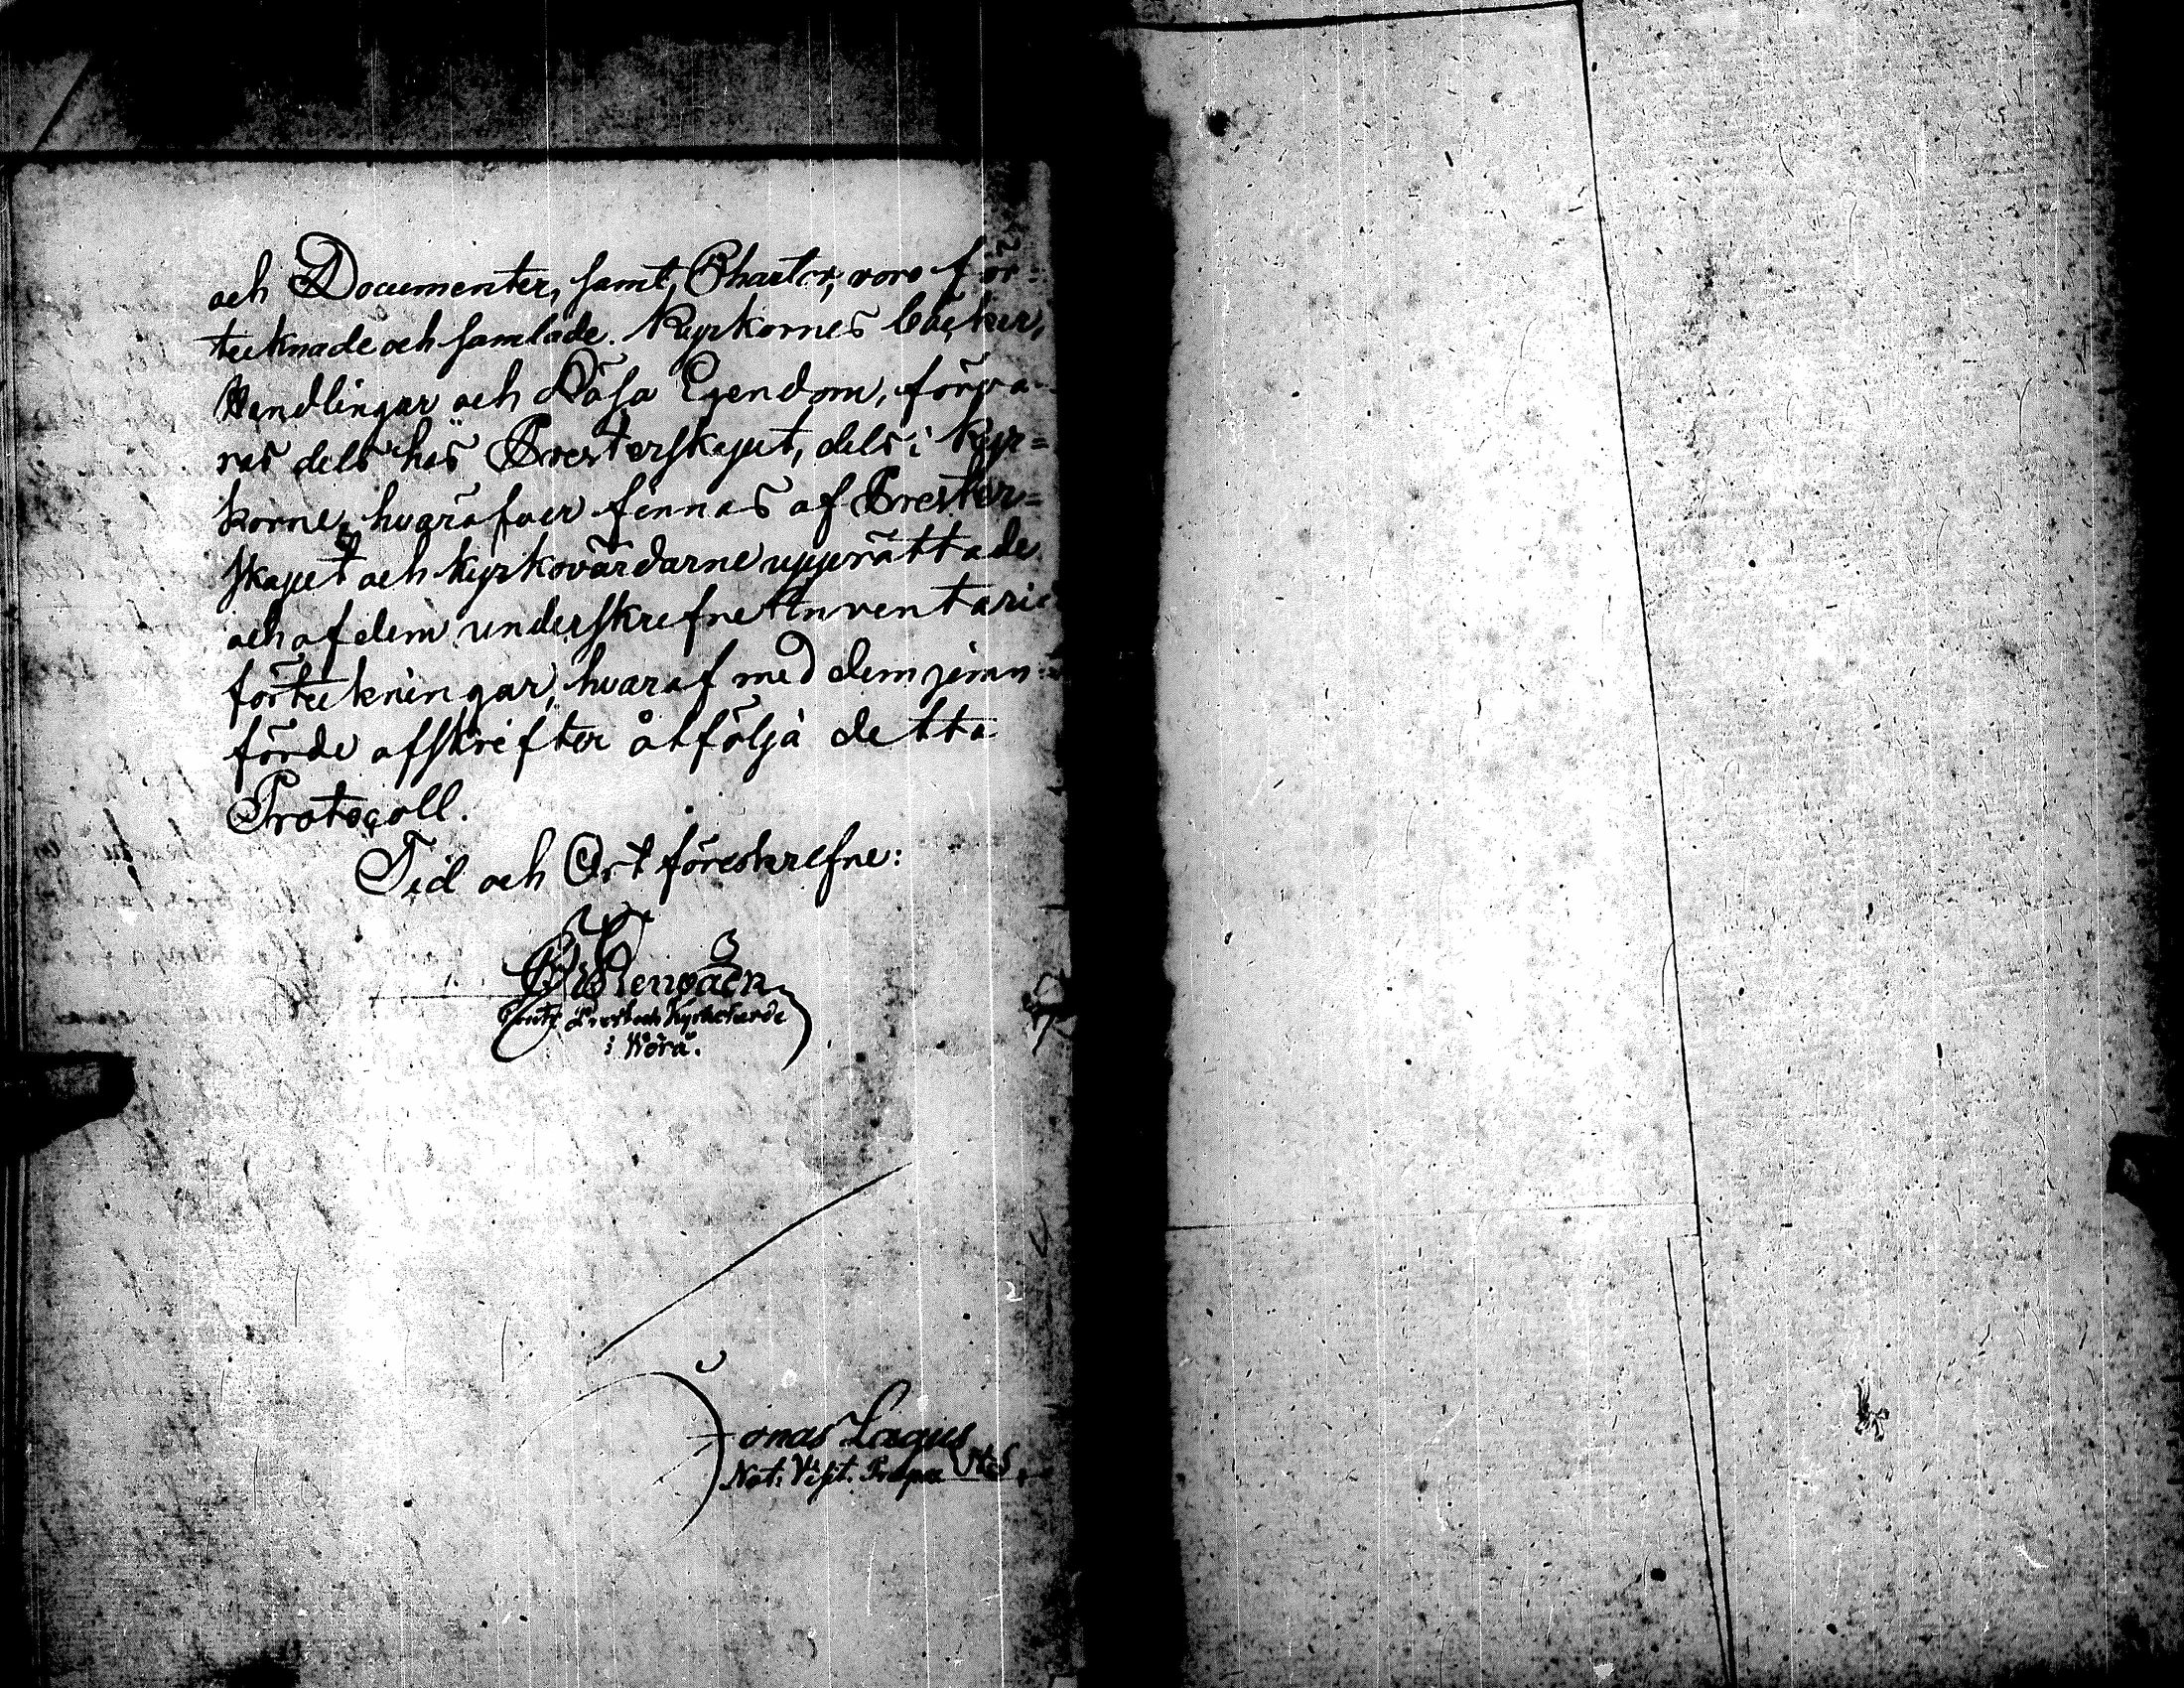 och Documenter, samt Chartor, voro för-
tecknade och samlade. Kyrkornes böcker,
Handlingar och Lösa Egendom, förva-
ras dels hos Presterskapet, dels i Kyr=
korne, hvaröfver finnas af Prester=
skapet och Kyrkovärdarne upprättade
och af dem underskrefne Inventarii
förteckningar, hvaraf med dem jemn-
förde afskrifter åtfölja detta
Protocoll.
Tid och Ort föreskrefne:
Prost och Kyrkoherde
i Wörå.
Jonas Lagus
Not: Visit: